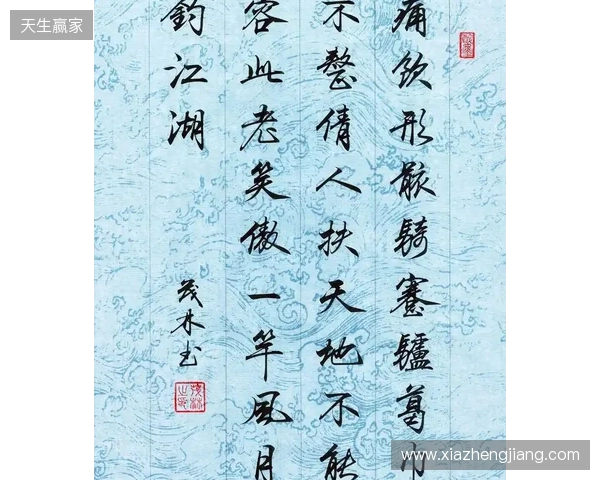 天生赢家
痛飲形骸騎蹇驢葛巾
不整倩人扶天地不能
容此老笑傲一竿風月
釣江湖
茂林书
www.xiazhengjiang.com